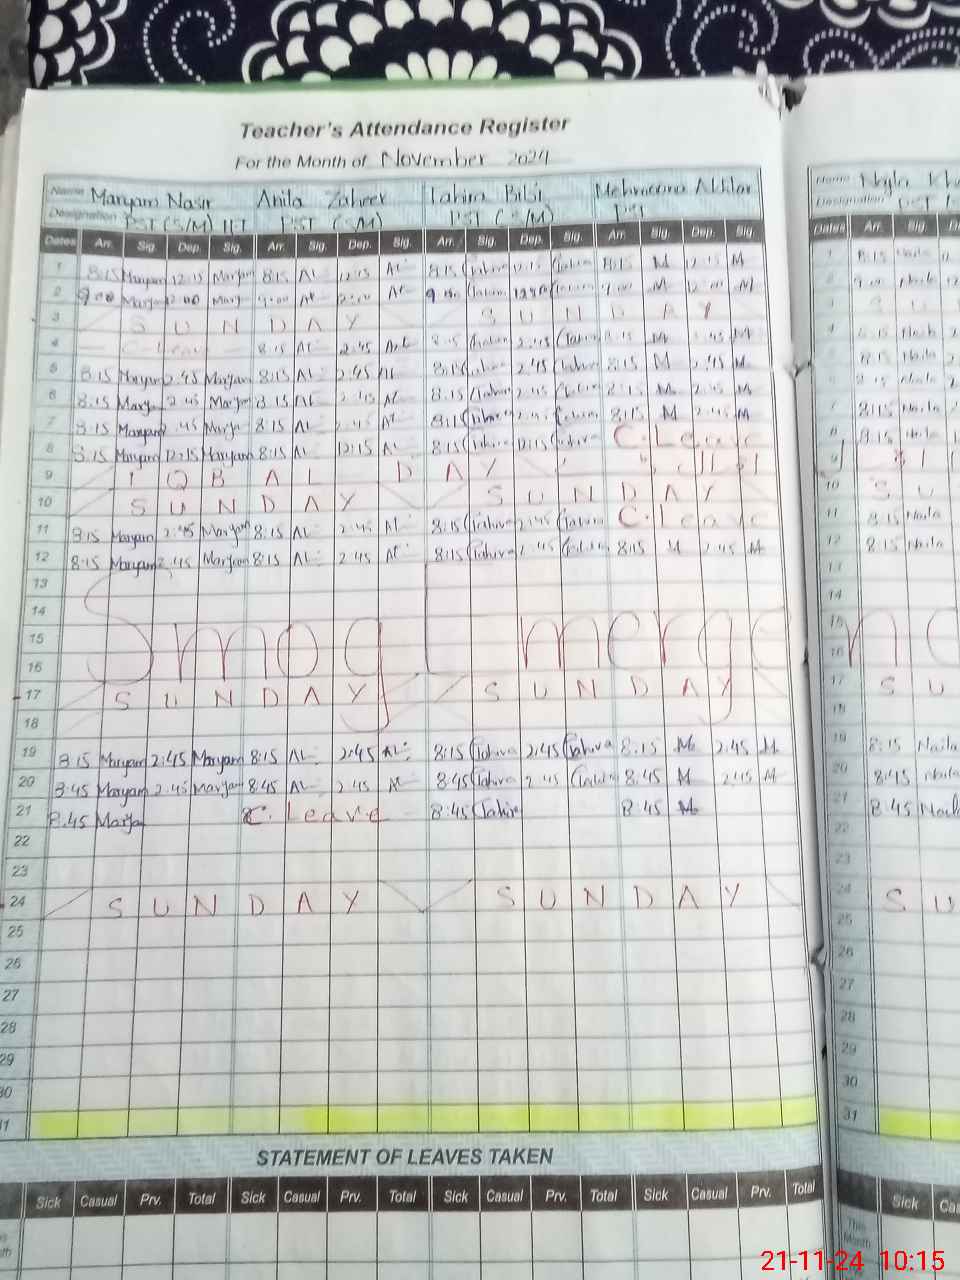 Teacher's Attendance Register
For the Month of November 2024
Name Maryam Nasir Anila Zaheer Tahira Bibi Mehmoona Akhtar Name Nayla
Designation PST (S/M) PST (S/M) PST (S/M) PST Designation PST
Dates Arr. Sig. Dep. Sig. Arr. Sig. Dep. Sig. Arr. Sig. Dep. Sig. Arr. Sig. Dep. Sig. Dates Arr. Sig.
1 8:15 Maryam 12:15 Maryam 8:15 AL 12:15 AL 8:15 Tahira 12:15 Tahira 8:15 M 12:15 M 8:15 Naila
2 9:00 Maryam 12:00 Mary 9:00 12:00 9:00 Tahira 9:00 M 12:00 M 9:00 Naila
3 S U N D A Y S U N D A Y S U
4 C-Leav 8:15 AL 2:45 8:15 Tahira 2:45 Tahira 8:15 M 2:45 M 8:15 Naila
5 8:15 Maryam 2:45 Maryam 8:15 AL 2:45 8:15 Tahira 2:45 Tahira 8:15 M 2:45 M 8:15 Naila
6 8:15 Mary 2:45 Maryam 8:15 AL 2:45 8:15 Tahira 2:45 Tahira 8:15 M 2:45 M 8:15 Naila
7 8:15 Maryam 2:45 Marya 8:15 AL 2:45 8:15 Tahira 2:45 Tahira 8:15 M 2:45 M 8:15 Naila
8 8:15 Maryam 12:15 Maryam 8:15 AL 12:15 AL 8:15 Tahira 12:15 Tahira C. Leave 8 8:15 Naila
9 I Q B A L D A Y 9
10 S U N D A Y S U N D A Y 10 S U
11 8:15 Maryam 2:45 Maryam 8:15 AL 2:45 AL 8:15 Tahira 2:45 Tahira C. Leave 11 8:15 Naila
12 8:15 Maryam 2:45 Maryam 8:15 AL 2:45 8:15 Tahira 2:45 Tahira 8:15 M 2:45 M 12 8:15 Naila
13 13
14 14
15 Smog Emergen 15
16 16
17 S U N D A Y S U N D A Y 17 S U
18 18
19 8:15 Maryam 2:45 Maryam 8:15 AL 2:45 AL 8:15 Tahira 2:45 Tahira 8:15 M 2:45 M 19 8:15 Naila
20 8:45 Maryam 2:45 Maryam 8:45 AL 2:45 8:45 Tahira 2:45 Tahira 8:45 M 2:45 M 20 8:45 Naila
21 8:45 Marya C. Leave 8:45 Tahira 8:45 M 21 8:45 Naila
22 22
23 23
24 S U N D A Y S U N D A Y 24 S U
25 25
26 26
27 27
28 28
29 29
30 30
31 31
STATEMENT OF LEAVES TAKEN
Sick Casual Prv. Total Sick Casual Prv. Total Sick Casual Prv. Total Sick Casual Prv. Total Sick
This Month
21-11-24 10:15